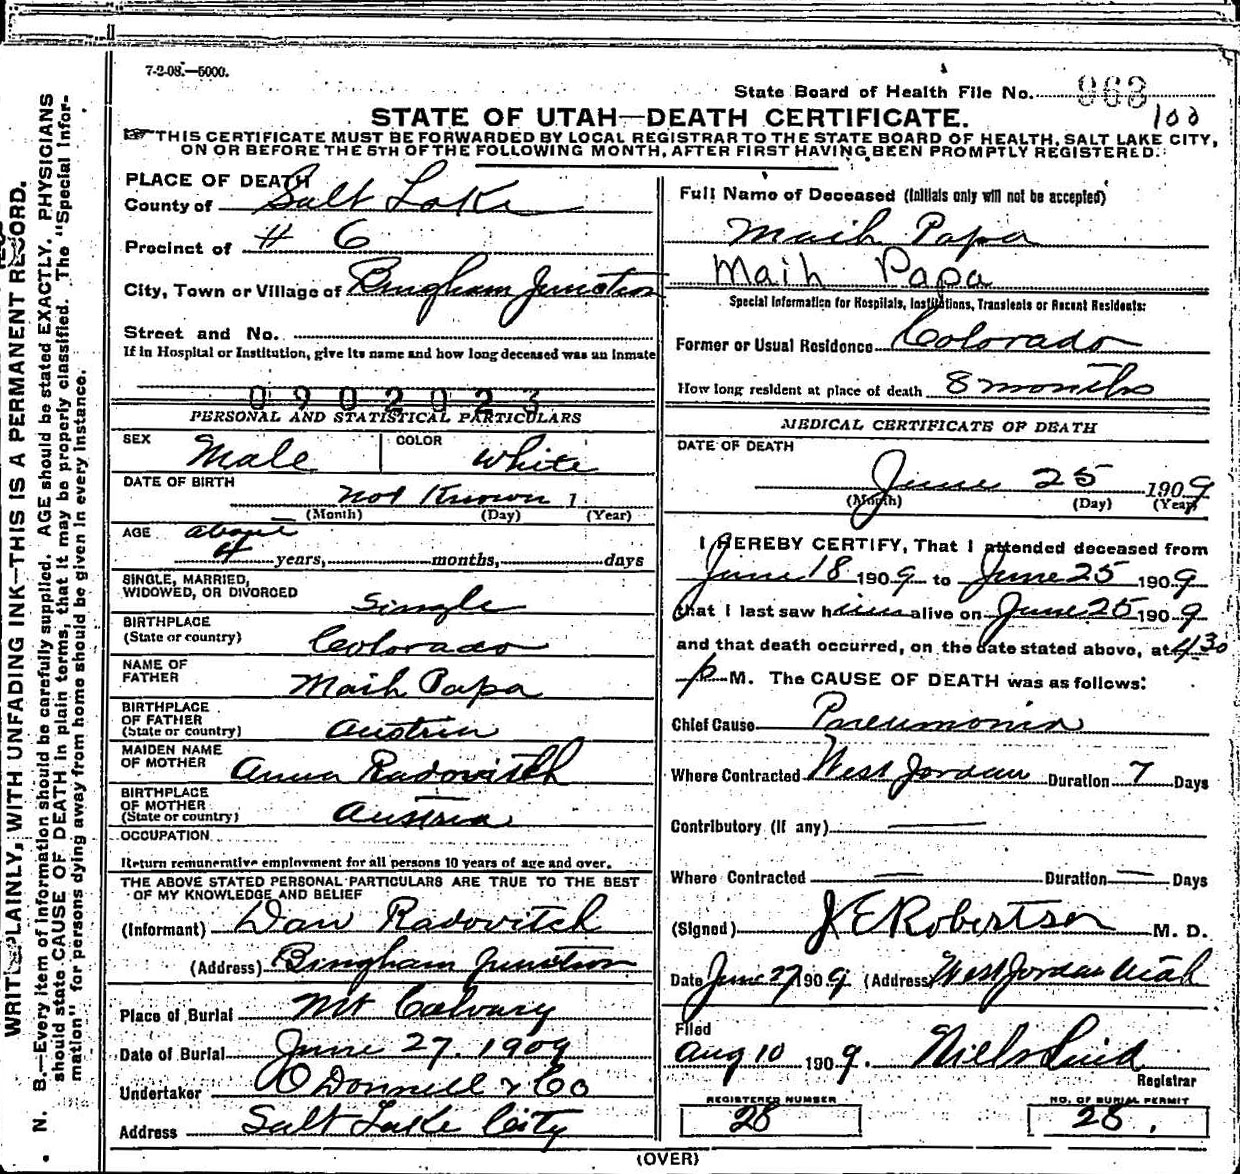 7-2-08.—5000.
State Board of Health File No. 963
100
STATE OF UTAH—DEATH CERTIFICATE.
☞THIS CERTIFICATE MUST BE FORWARDED BY LOCAL REGISTRAR TO THE STATE BOARD OF HEALTH, SALT LAKE CITY,
ON OR BEFORE THE 5TH OF THE FOLLOWING MONTH, AFTER FIRST HAVING BEEN PROMPTLY REGISTERED.
PLACE OF DEATH
County of Salt Lake
Precinct of # 6
City, Town or Village of Bingham Junction
Street and No.
If in Hospital or Institution, give its name and how long deceased was an inmate
0902023
PERSONAL AND STATISTICAL PARTICULARS
SEX Male COLOR White
DATE OF BIRTH not Known 1
(Month) (Day) (Year)
AGE about
4 years, months, days
SINGLE, MARRIED,
WIDOWED, OR DIVORCED Single
BIRTHPLACE
(State or country) Colorado
NAME OF
FATHER Maih Papa
BIRTHPLACE
OF FATHER
(State or country) Austria
MAIDEN NAME
OF MOTHER Anna Radovitch
BIRTHPLACE
OF MOTHER
(State or country) Austria
OCCUPATION
Return remunerative employment for all persons 10 years of age and over.
THE ABOVE STATED PERSONAL PARTICULARS ARE TRUE TO THE BEST
OF MY KNOWLEDGE AND BELIEF
(Informant) Dan Radovitch
(Address) Bingham Junction
Place of Burial Mt Calvary
Date of Burial June 27. 1909
Undertaker O'Donnell & Co
Address Salt Lake City
Full Name of Deceased (Initials only will not be accepted)
Maih Papa
Maih Papa
Special Information for Hospitals, Institutions, Transients or Recent Residents:
Former or Usual Residence Colorado
How long resident at place of death 8 months
MEDICAL CERTIFICATE OF DEATH
DATE OF DEATH
June 25 1909
(Month) (Day) (Year)
I HEREBY CERTIFY, That I attended deceased from
June 18 1909 to June 25 1909
that I last saw him alive on June 25 1909
and that death occurred, on the date stated above, at 4 30
p M. The CAUSE OF DEATH was as follows:
Chief Cause Pneumonia
Where Contracted West Jordan Duration 7 Days
Contributory (if any) —
Where Contracted — Duration — Days
(Signed) J E Robertson M. D.
Date June 27 1909. (Address) West Jordan Utah
Filed
Aug 10 1909. Niels Lind
Registrar
REGISTERED NUMBER
28
NO. OF BURIAL PERMIT
28.
(OVER)
WRITE PLAINLY, WITH UNFADING INK—THIS IS A PERMANENT RECORD.
N. B.—Every item of information should be carefully supplied. AGE should be stated EXACTLY. PHYSICIANS
should state CAUSE OF DEATH in plain terms, that it may be properly classified. The "Special Infor-
mation" for persons dying away from home should be given in every instance.